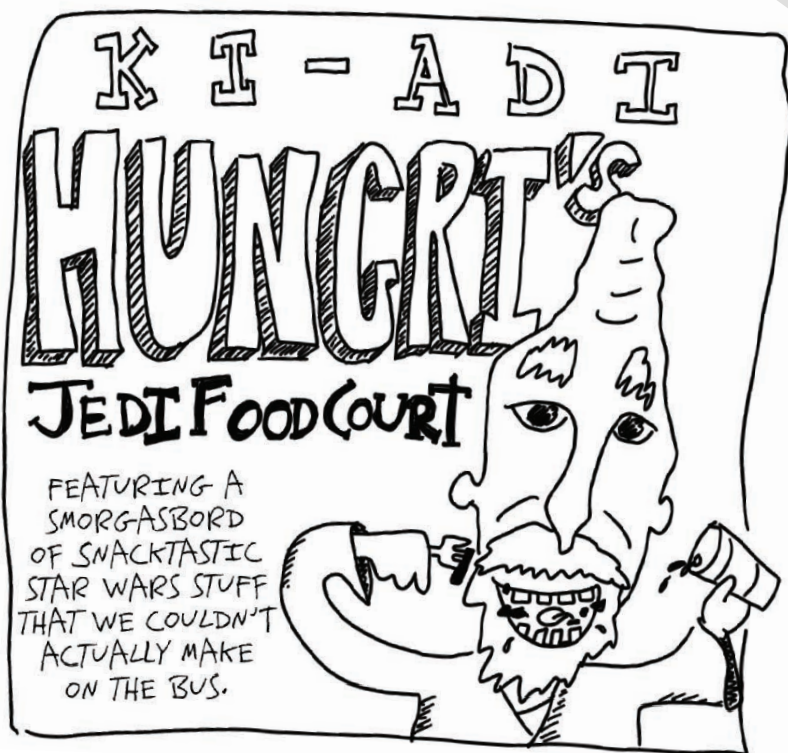 KI-ADI
HUNGRI'S
JEDI FOOD COURT
FEATURING A
SMORGASBORD
OF SNACKTASTIC
STAR WARS STUFF
THAT WE COULDN'T
ACTUALLY MAKE
ON THE BUS.